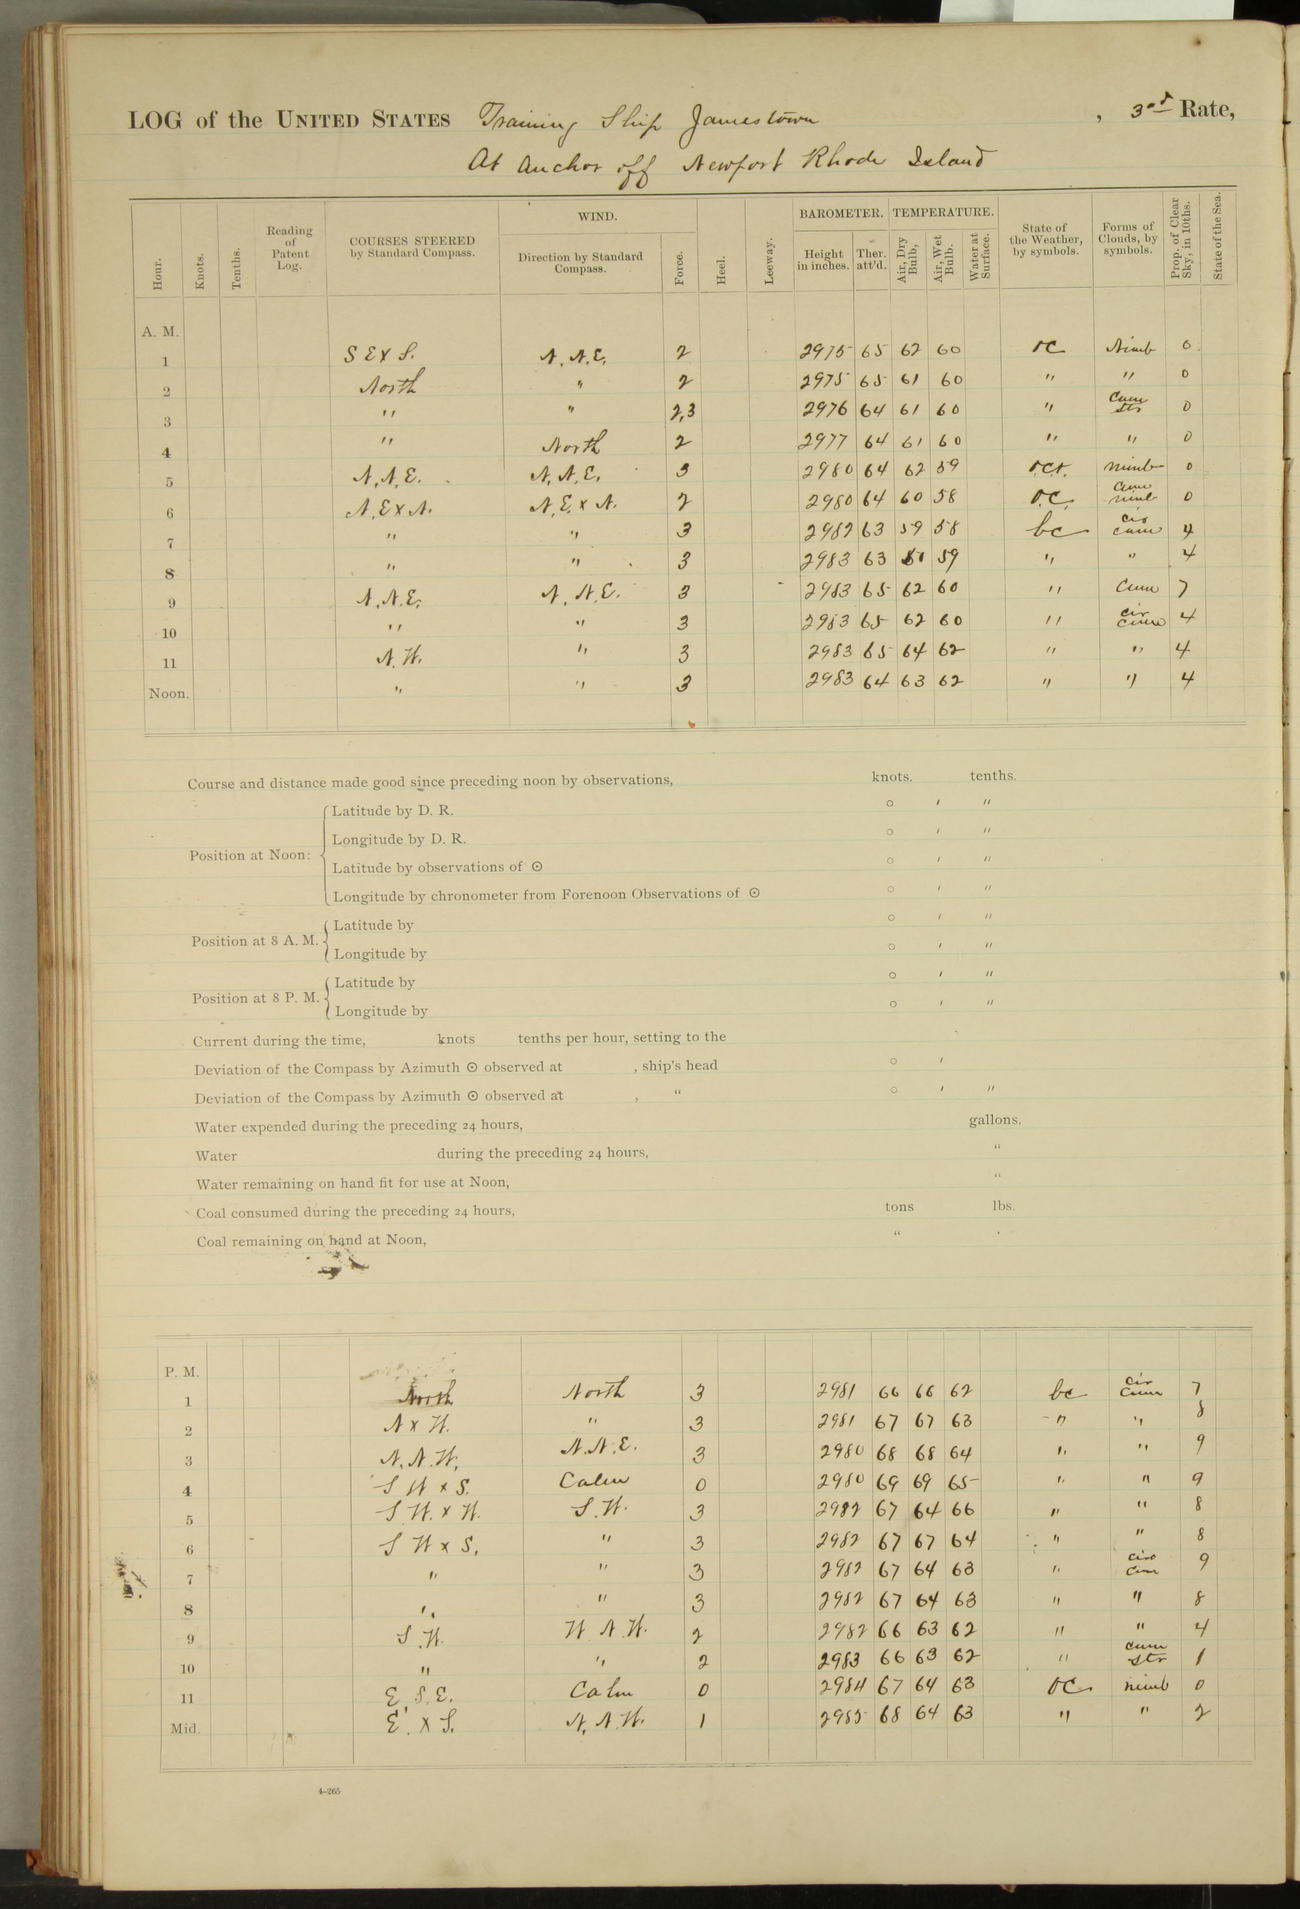 LOG of the UNITED STATES Training Ship Jamestown , 3rd Rate,
At Anchor off Newport Rhode Island
Hour. Knots. Tenths. Reading of Patent Log. COURSES STEERED by Standard Compass. WIND. Direction by Standard Compass. Force. Heel. Leeway. BAROMETER. Height in inches. Ther. att'd. TEMPERATURE. Air, Dry Bulb, Air, Wet Bulb. Water at Surface. State of the Weather, by symbols. Forms of Clouds, by symbols. Prop. of Clear Sky, in 10ths. State of the Sea.
A. M.
1 S E x S. N. N. E. 2 2975 65 62 60 oc Nimb 0
2 North " 2 2975 65 61 60 " " 0
3 " " 2,3 2976 64 61 60 " Cum str 0
4 " North 2 2977 64 61 60 " " 0
5 N. N. E. N. N. E. 3 2980 64 62 59 o.c.r. nimb 0
6 N. E x N. N. E. x N. 2 2980 64 60 58 o.c. cum nimb 0
7 " " 3 2982 63 59 58 bc cir cum 4
8 " " 3 2983 63 61 59 " " 4
9 N. N. E. N. N. E. 3 2983 65 62 60 " Cum 7
10 " " 3 2983 65 62 60 " cir cum 4
11 N. W. " 3 2983 65 64 62 " " 4
Noon. " " 3 2983 64 63 62 " " 4
Course and distance made good since preceding noon by observations, knots. tenths.
Position at Noon: Latitude by D. R. ° ′ ″
Longitude by D. R. ° ′ ″
Latitude by observations of ⊙ ° ′ ″
Longitude by chronometer from Forenoon Observations of ⊙ ° ′ ″
Position at 8 A. M. Latitude by ° ′ ″
Longitude by ° ′ ″
Position at 8 P. M. Latitude by ° ′ ″
Longitude by ° ′ ″
Current during the time, knots tenths per hour, setting to the
Deviation of the Compass by Azimuth ⊙ observed at , ship's head ° ′
Deviation of the Compass by Azimuth ⊙ observed at , " ° ′ ″
Water expended during the preceding 24 hours, gallons.
Water during the preceding 24 hours, "
Water remaining on hand fit for use at Noon, "
Coal consumed during the preceding 24 hours, tons lbs.
Coal remaining on hand at Noon, "
P. M.
1 North North 3 2981 66 66 62 bc cir cum 7
2 N x W. " 3 2981 67 67 63 " " 8
3 N. N. W. N. N. E. 3 2980 68 68 64 " " 9
4 S W x S. Calm 0 2980 69 69 65 " " 9
5 S W. x W. S. W. 3 2982 67 64 66 " " 8
6 S W x S. " 3 2982 67 67 64 " " 8
7 " " 3 2982 67 64 63 " cir cum 9
8 " " 3 2982 67 64 63 " " 8
9 S. W. W. N. W. 2 2982 66 63 62 " " 4
10 " " 2 2983 66 63 62 " cum str 1
11 E. S. E. Calm 0 2984 67 64 63 oc nimb 0
Mid. E. x S. N. N. W. 1 2985 68 64 63 " " 2
4-265